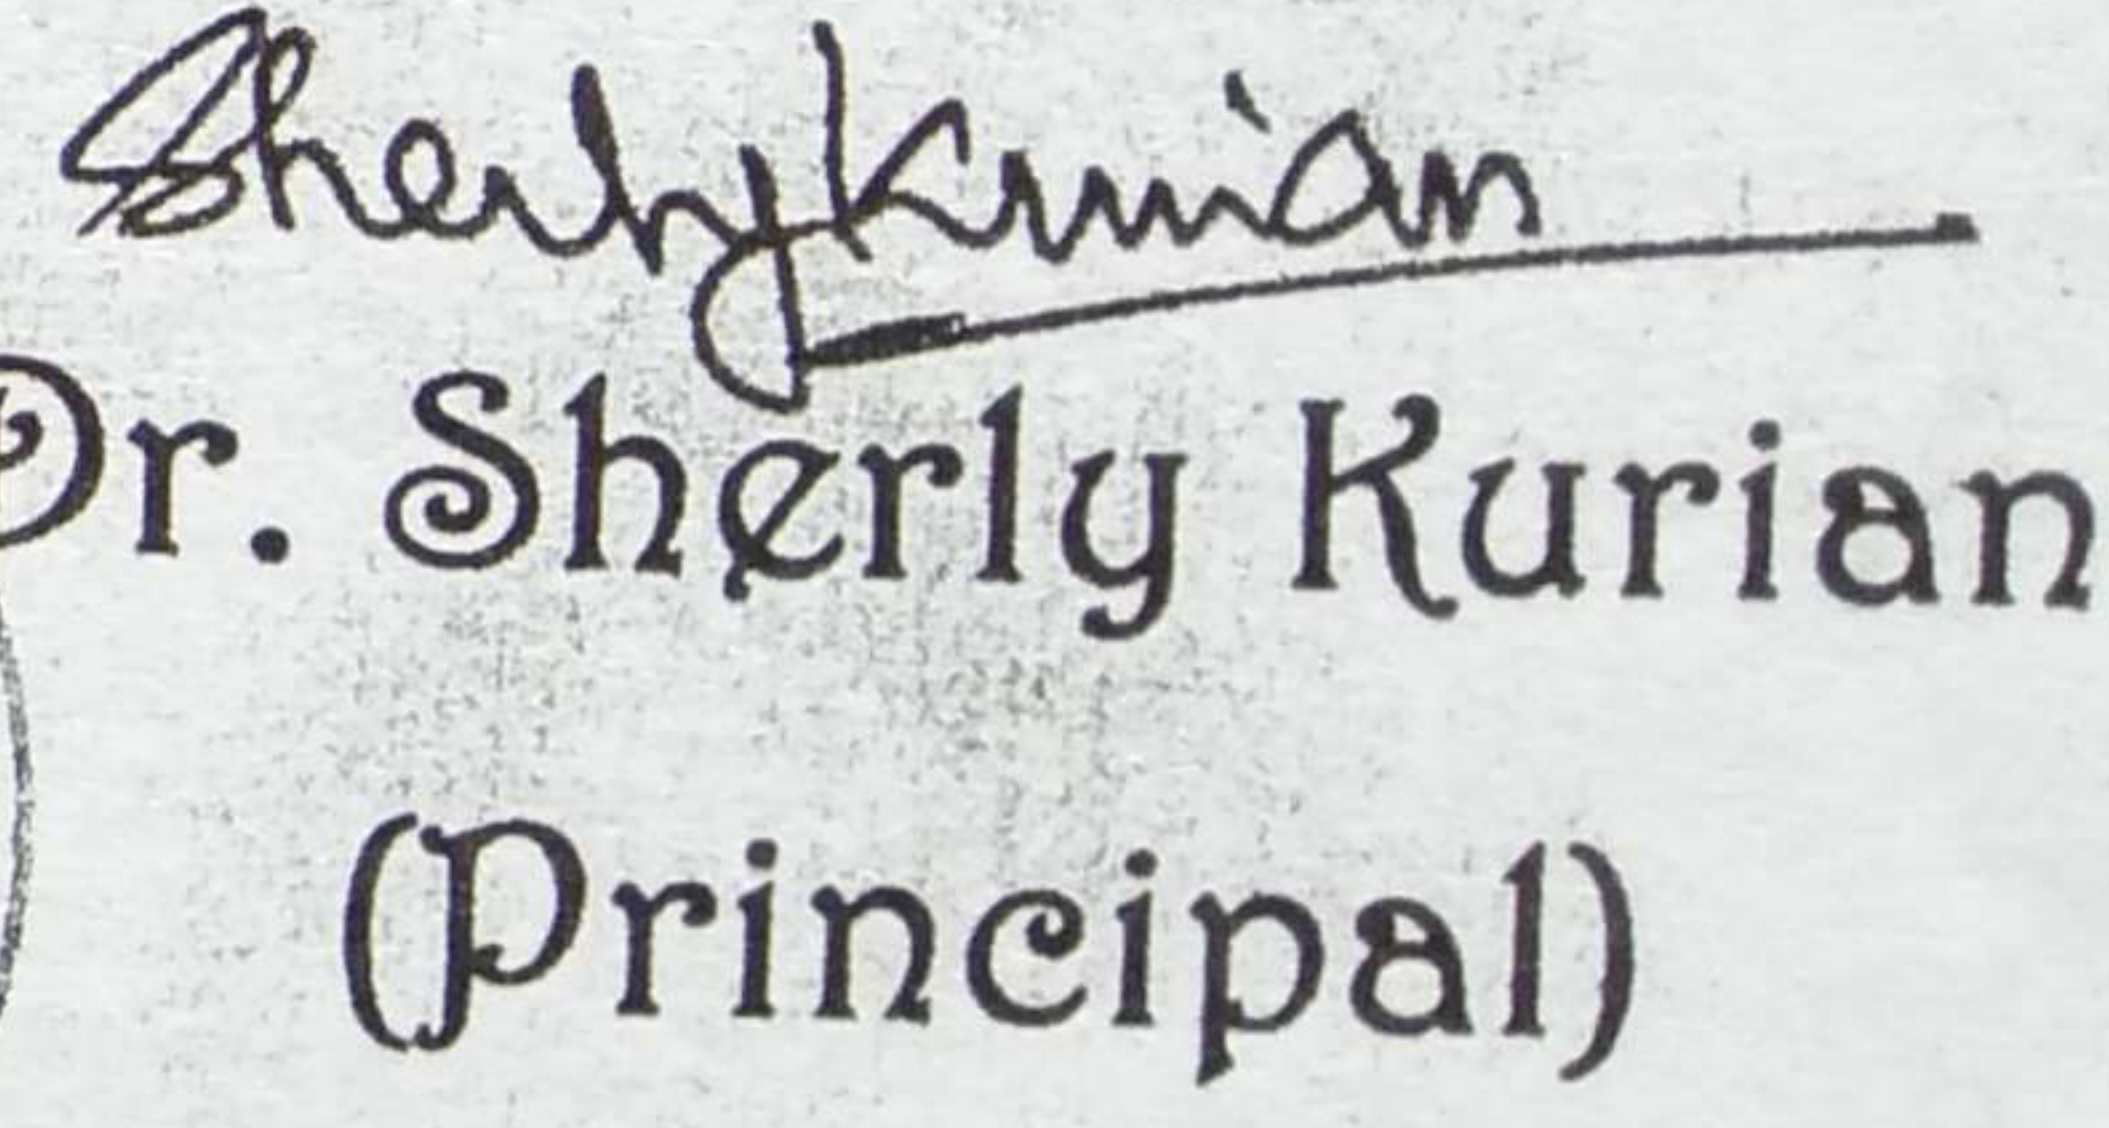 Sherly Kurian
Dr. Sherly Kurian
(Principal)